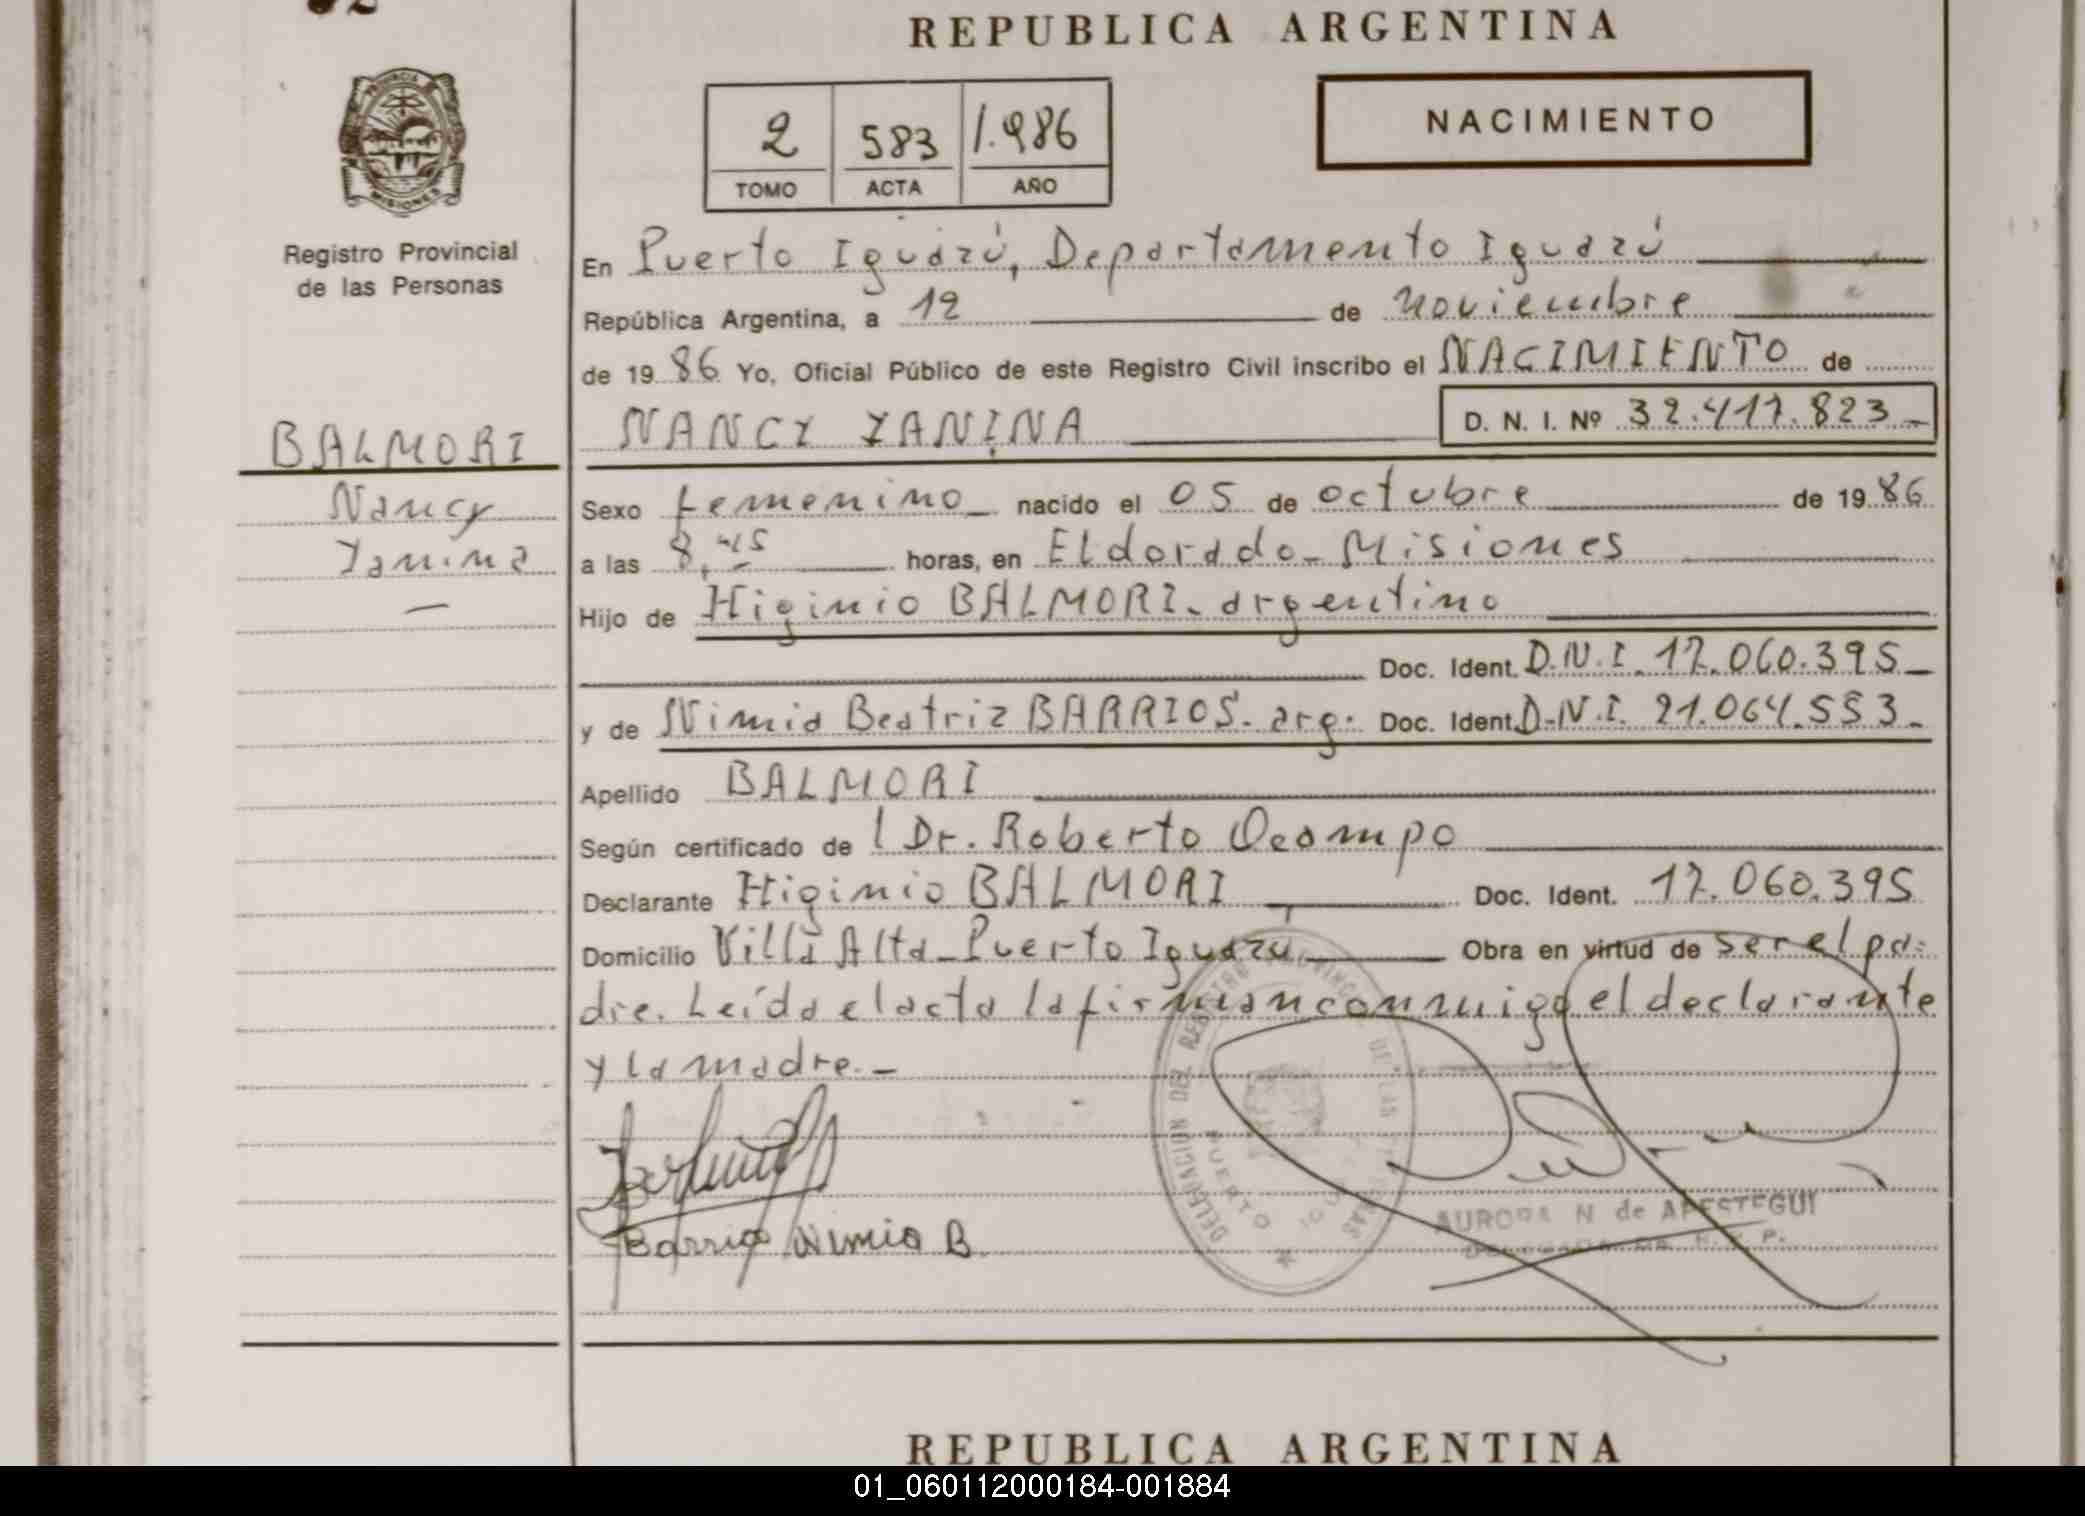 REPUBLICA ARGENTINA
2 583 1.986
TOMO ACTA AÑO
NACIMIENTO
PROVINCIA DE
MISIONES
Registro Provincial
de las Personas
BALMORI
Nancy
Yanina
En Puerto Iguazú, Departamento Iguazú
República Argentina, a 12 de noviembre
de 19 86 Yo, Oficial Público de este Registro Civil inscribo el NACIMIENTO de
NANCY YANINA D. N. I. Nº 32.417.823
Sexo femenino nacido el 05 de octubre de 19 86
a las 8,45 horas, en Eldorado - Misiones
Hijo de Higinio BALMORI - argentino
Doc. Ident. D.N.I. 17.060.395
y de Nimia Beatriz BARRIOS - arg. Doc. Ident. D.N.I. 21.064.553
Apellido BALMORI
Según certificado de l Dr. Roberto Ocampo
Declarante Higinio BALMORI Doc. Ident. 17.060.395
Domicilio Villa Alta - Puerto Iguazú Obra en virtud de ser el pa-
dre. Leída el acta la firman conmigo el declarante
y la madre. -
Barrio Nimia B.
DELEGACION DEL REGISTRO PROVINCIAL DE LAS PERSONAS
PUERTO
AURORA N de APESTEGUI
REPUBLICA ARGENTINA
01_060112000184-001884